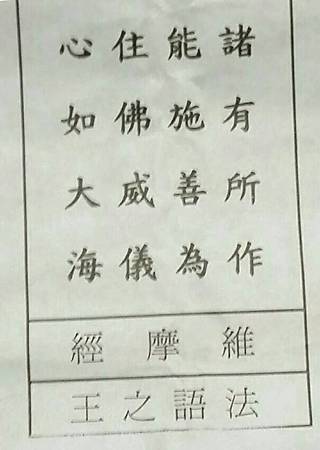 諸有所作
能施善為
住佛威儀
心如大海
維摩經
法語之王